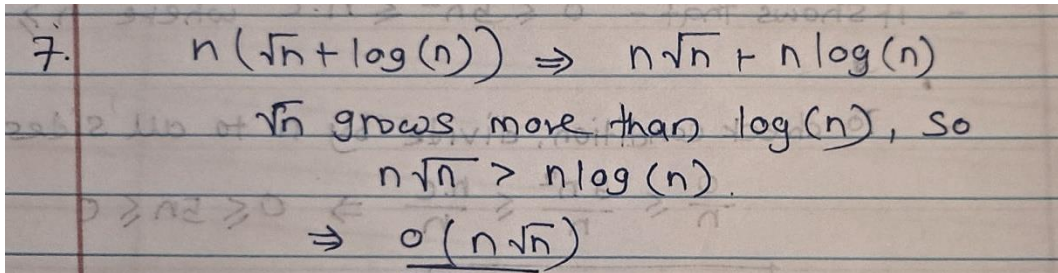 7. n(√n + log(n)) ⇒ n√n + n log(n)
√n grows more than log(n), so
n√n > n log(n).
⇒ O(n√n)